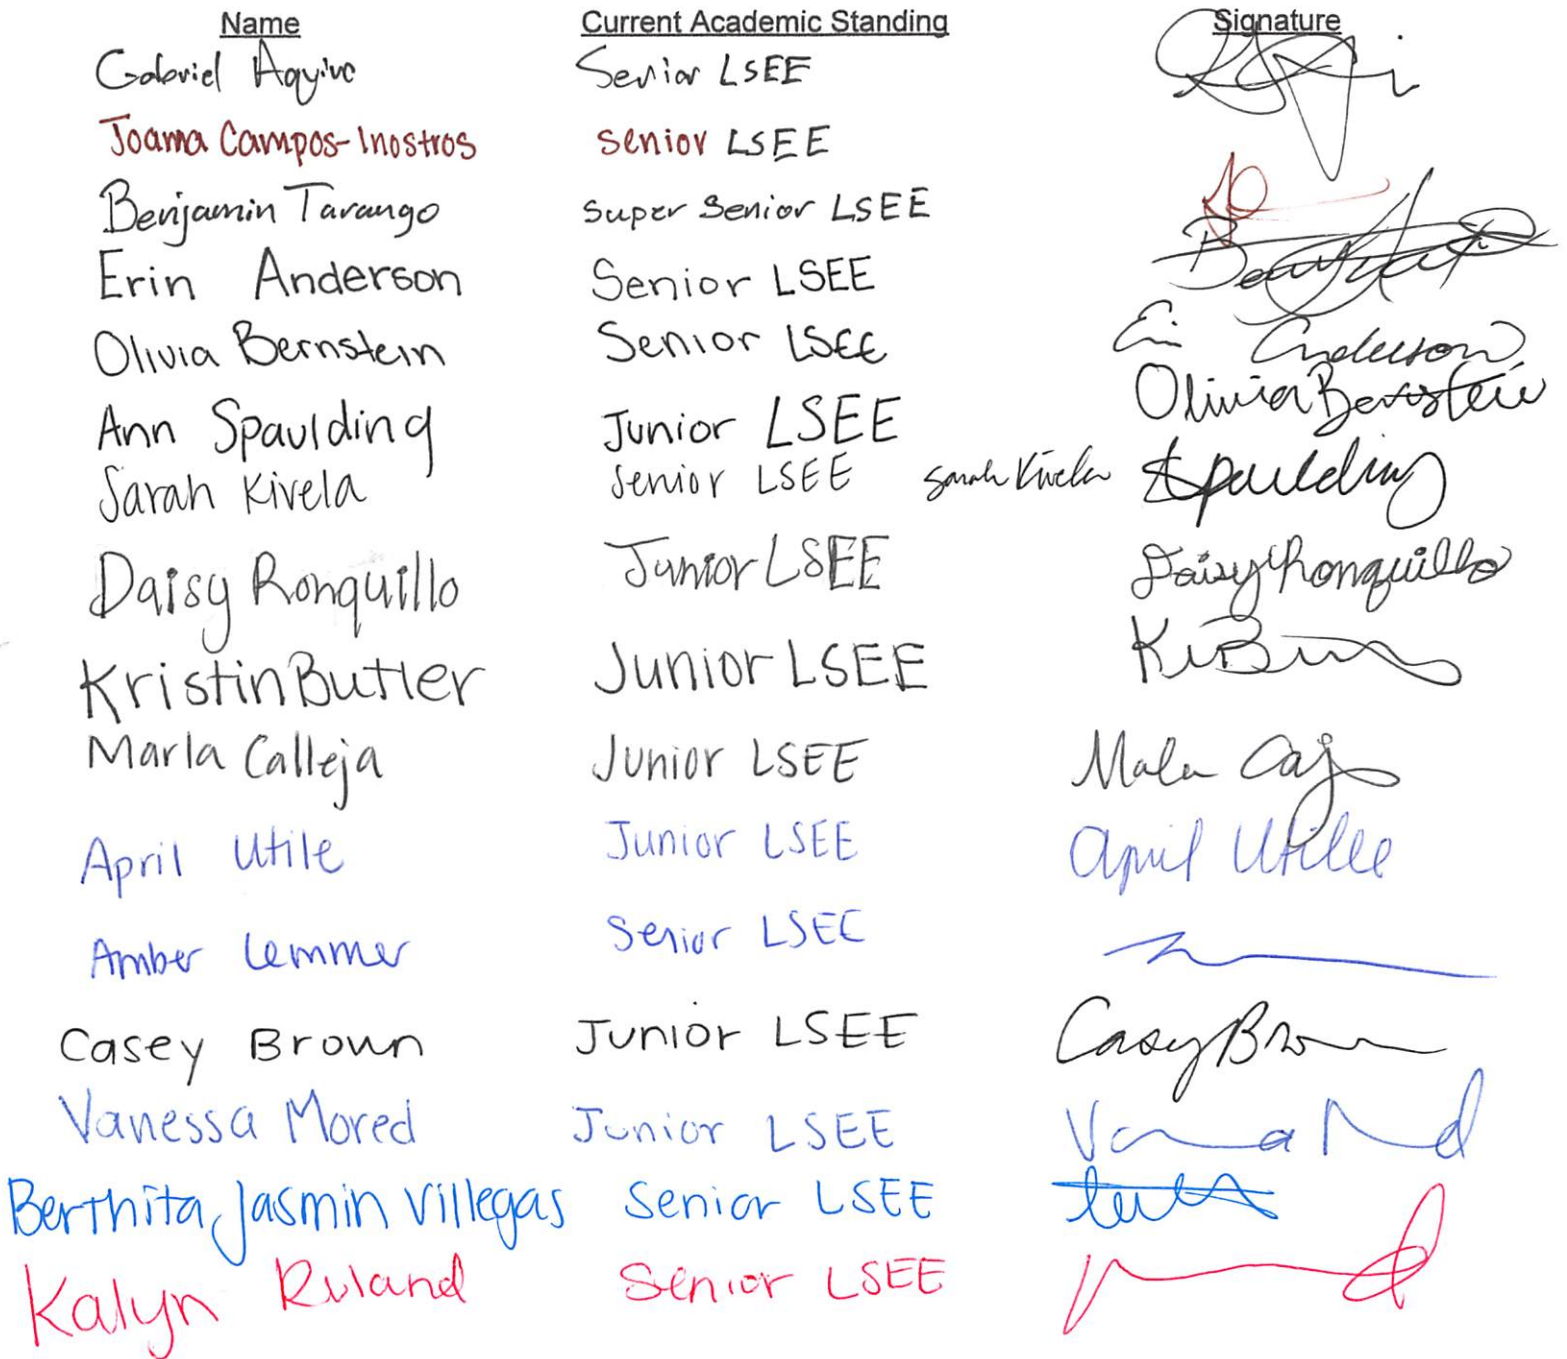 Name Current Academic Standing Signature
Gabriel Senior LSEE
Joama Campos-Inostros Senior LSEE
Benjamin Tarango Super Senior LSEE
Erin Anderson Senior LSEE
Olivia Bernstein Senior LSEE Erin Anderson
Ann Spaulding Junior LSEE Olivia Bernstein
Sarah Kivela Senior LSEE Sarah Kivela Spaulding
Daisy Ronquillo Junior LSEE Daisy Ronquillo
Kristin Butler Junior LSEE
Marla Calleja Junior LSEE
April Utile Junior LSEE April Utille
Amber Lemmer Senior LSEE
Casey Brown Junior LSEE Casey Brown
Vanessa Mored Junior LSEE
Berthita Jasmin Villegas Senior LSEE
Kalyn Ruland Senior LSEE